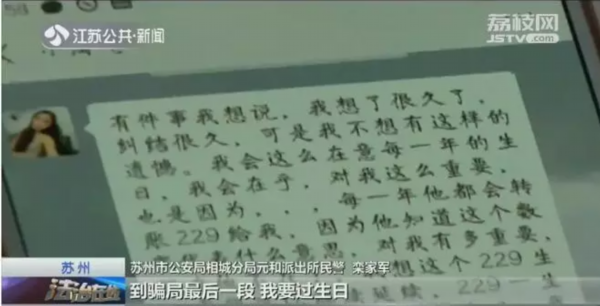 江苏公共·新闻
荔枝网
JSTV.com
有件事我想说，我想了很久了，
纠结很久，可是我不想有这样的
遗憾。我会这么在意每一年的生
日，我会在乎，对我这么重要，
也是因为，，，每一年他都会转
账229给我，因为他知道这个数
对我有多重要，
想这个229生
延续，229
苏州
法治在线
苏州市公安局相城分局元和派出所民警 栾家军
到骗局最后一段 我要过生日